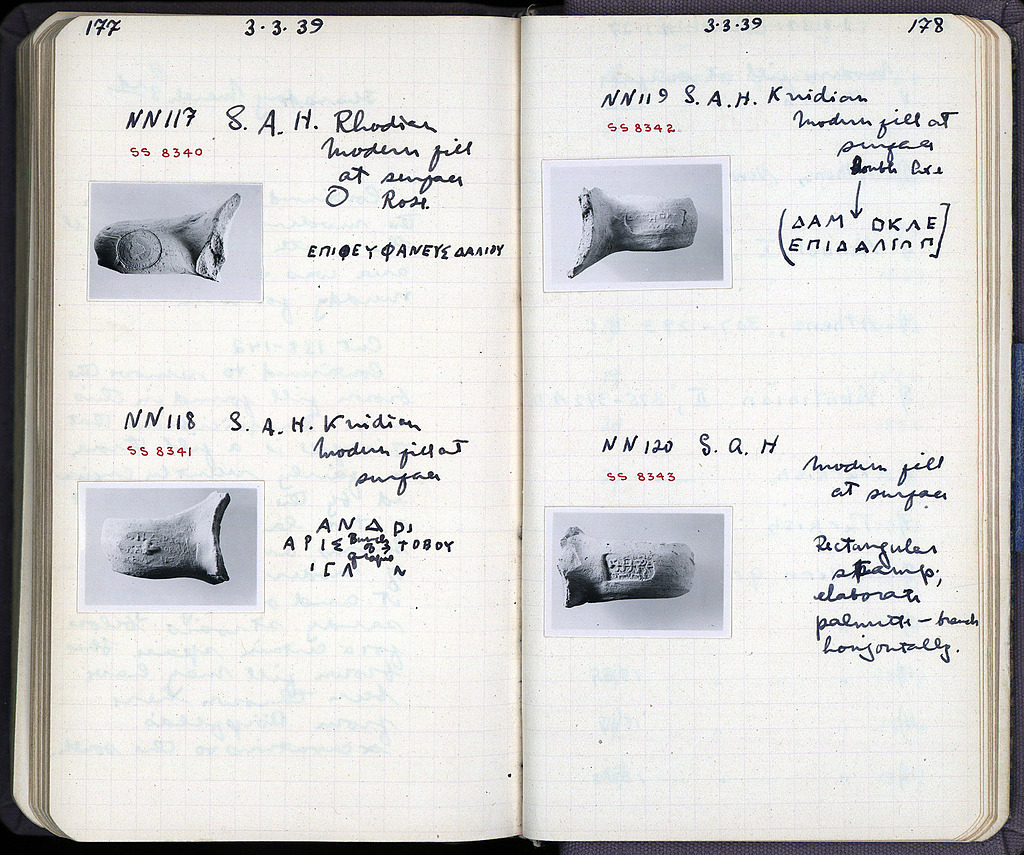 177
3·3·39
NN117 S. A. H. Rhodian
SS 8340
Modern fill
at surface
Rose.
ΕΠΙΘΕΥΦΑΝΕΥΣ ΔΑΛΙΟΥ
NN118 S. A. H. Knidian
SS 8341
Modern fill at
surface
ΑΝΔΡΙ
ΑΡΙΣ Bunch of 3 grapes ΤΟΒΟΥ
3·3·39
178
NN119 S. A. H. Knidian
SS 8342
Modern fill at
surface
Double Axe
ΔΑΜ ΟΚΛΕ
ΕΠΙΔΑΛΙΩΠ
NN120 S. A. H
SS 8343
Modern fill
at surface
Rectangular
stamp;
elaborate
palmette – branch
horizontally.